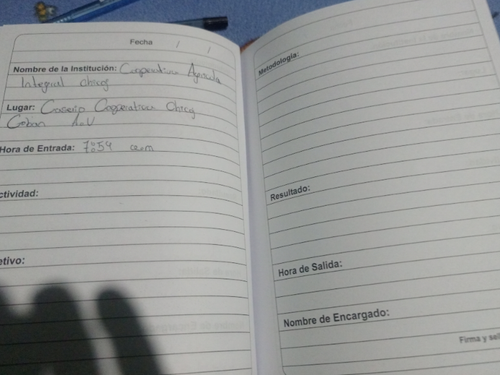 Fecha / /
Nombre de la Institución: Cooperativa Agricola
Integral chicoj
Lugar: Caserio Cooperativa Chicoj
Coban A.V
Hora de Entrada: 7:54 a.m
ctividad:
etivo:
Metodología:
Resultado:
Hora de Salida:
Nombre de Encargado:
Firma y sel